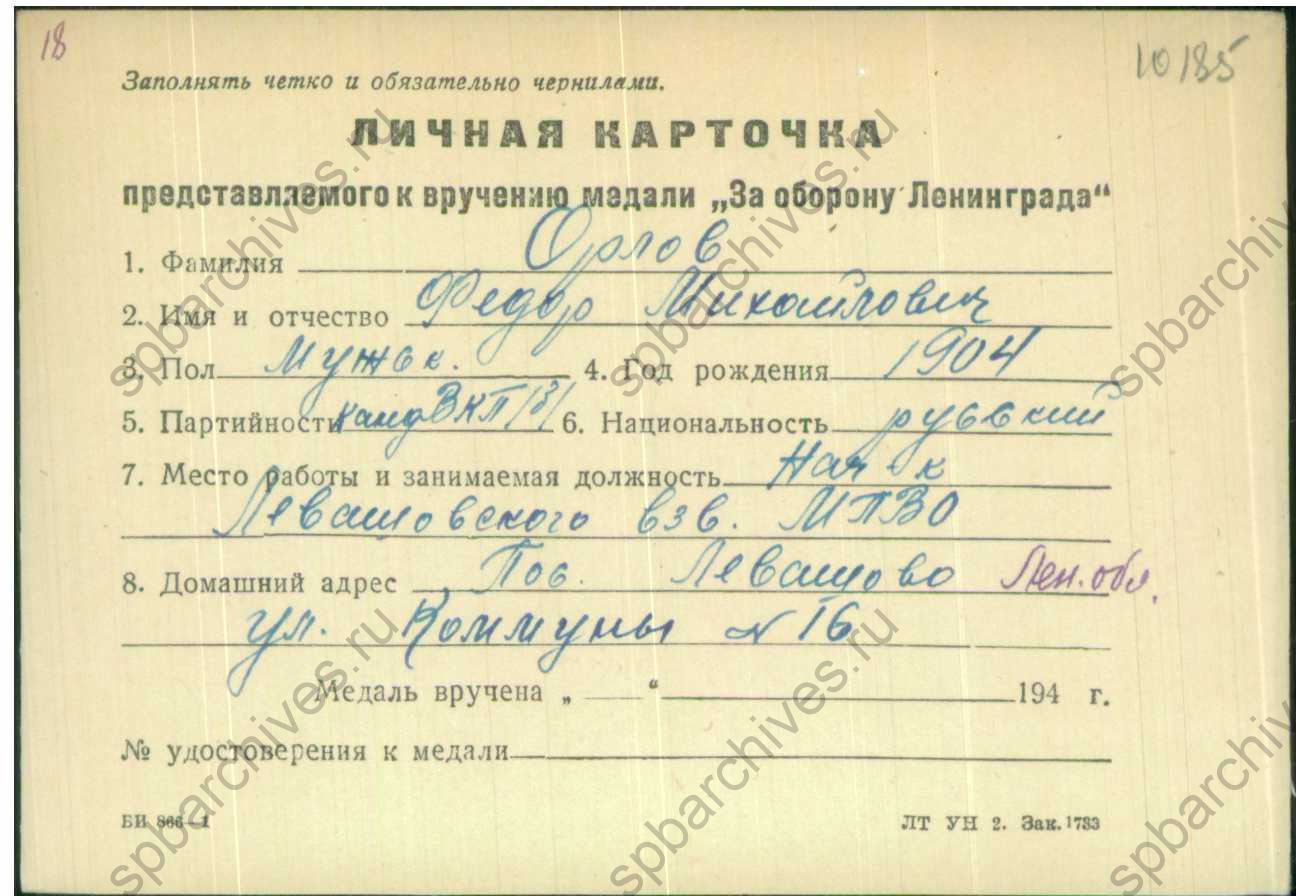 18
10185
Заполнять четко и обязательно чернилами.
ЛИЧНАЯ КАРТОЧКА
представляемого к вручению медали „За оборону Ленинграда“
1. Фамилия Орлов
2. Имя и отчество Федор Михайлович
3. Пол Мужск. 4. Год рождения 1904
5. Партийность канд ВКП/б/ 6. Национальность русский
7. Место работы и занимаемая должность Нач-к
Левашовского взв. МПВО
8. Домашний адрес Пос. Левашово Лен. обл.
ул. Коммуны № 16
Медаль вручена „ “ 194 г.
№ удостоверения к медали
БИ 866—1 ЛТ УН 2. Зак. 1733
spbarchives.ru